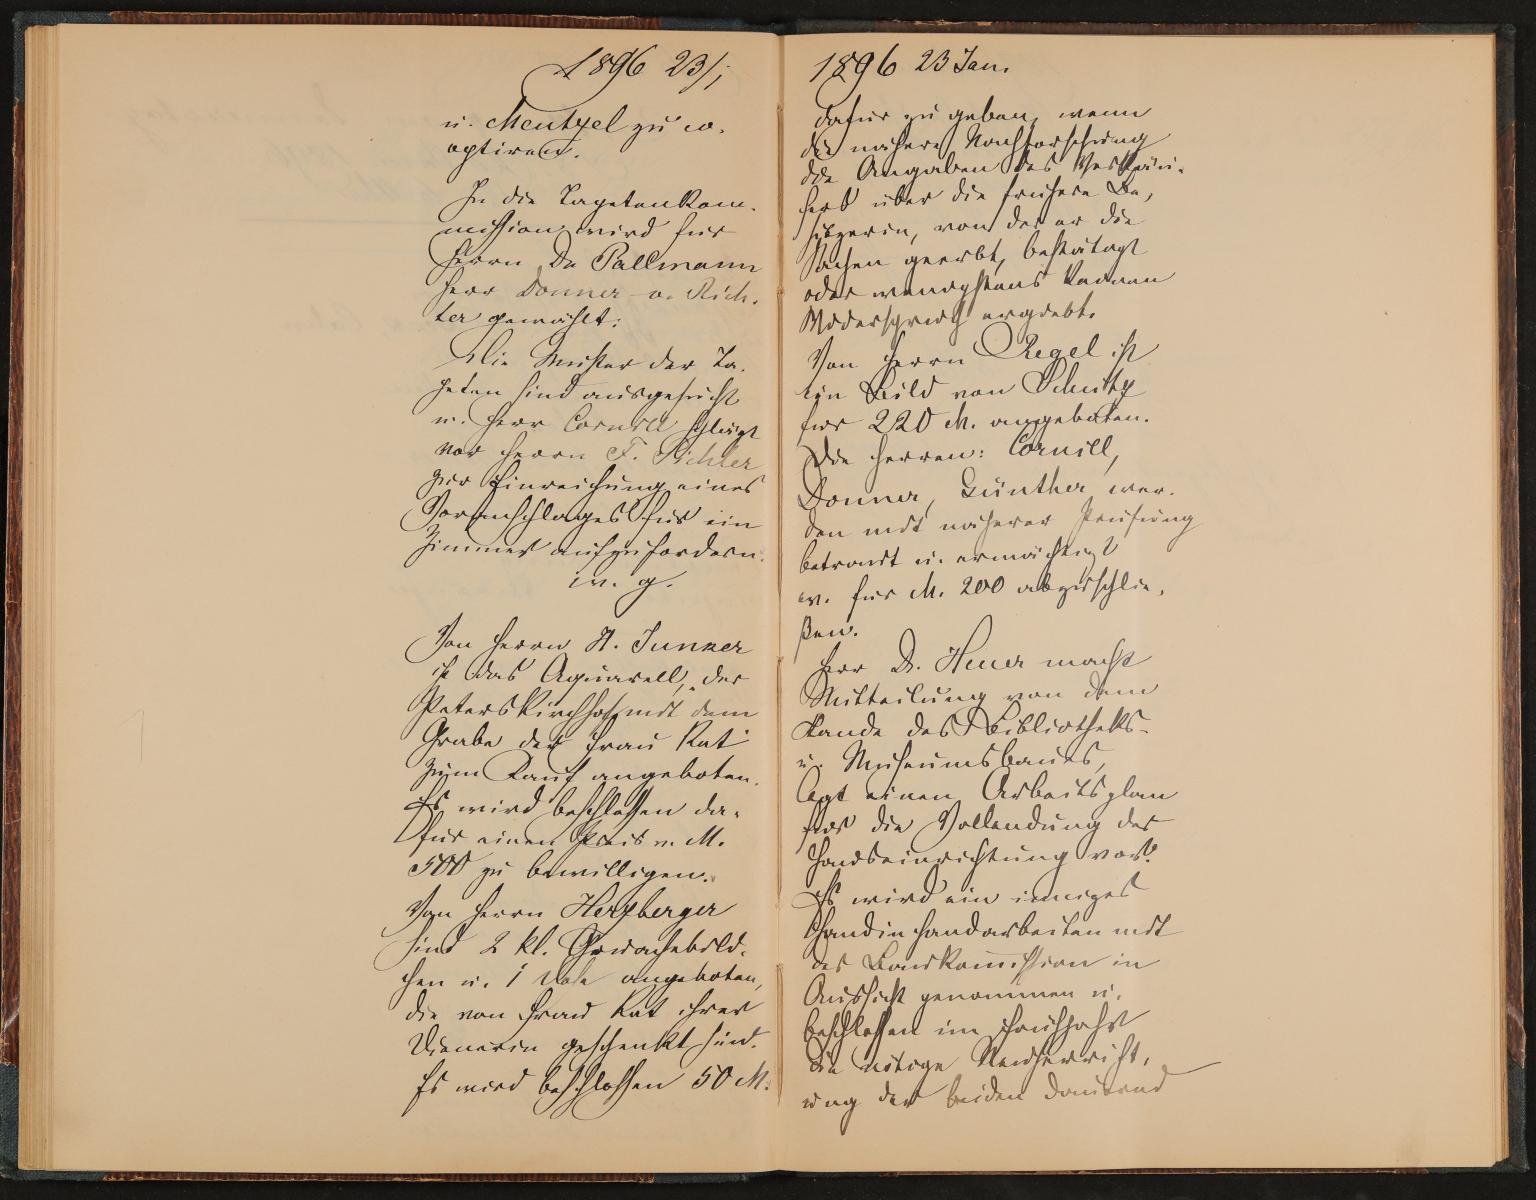 1896 23/j
u. Mentzel zu co-
optiren.
In die Tapetenkom-
mission wird für
Herrn Dr Pallmann
Herr Donner-v. Rich-
ter gewählt.
Die Muster der Ta-
peten sind ausgesucht
u. Herr Cornill schlägt
vor Herrn F. Pichler
zur Einreichung eines
Voranschlages für ein
Zimmer aufzufordern.
w. g.
Von Herrn H. Junker
ist das Aquarell, der
Peterskirchhof mit dem
Grabe der Frau Rat
zum Kauf angeboten.
Es wird beschlossen da-
für einen Preis v. M.
500 zu bewilligen.
Von Herrn Herzberger
sind 2 kl. Gouachebild-
chen u. 1 angeboten,
die von Frau Rat ihrer
Dienerin geschenkt sind.
Es wird beschlossen 50 M.
1896 23 Jan.
dafür zu geben, wenn
die nähere Nachforschung
die Angaben des Verkäu-
fers über die frühere Be-
sitzerin, von der er die
Sachen geerbt, bestätigt
oder wenigstens keinen
Widerspruch ergiebt.
Von Herrn Regel ist
ein Bild von Schütz
für 220 M. angeboten.
Die Herren: Cornill,
Donner, Günther wer-
den mit näherer Prüfung
betraut u. ermächtigt
ev. für M. 200 abzuschlie-
ßen.
Herr Dr. Heuer macht
Mitteilung von dem
Stande des Bibliotheks-
u. Museumsbaues,
legt einen Arbeitsplan
für die Vollendung der
Hauseinrichtung vor.
Es wird ein inniges
Handinhandarbeiten mit
der Baukommission in
Aussicht genommen u.
beschlossen im Frühjahr
die nötige Neuherricht-
ung der beiden